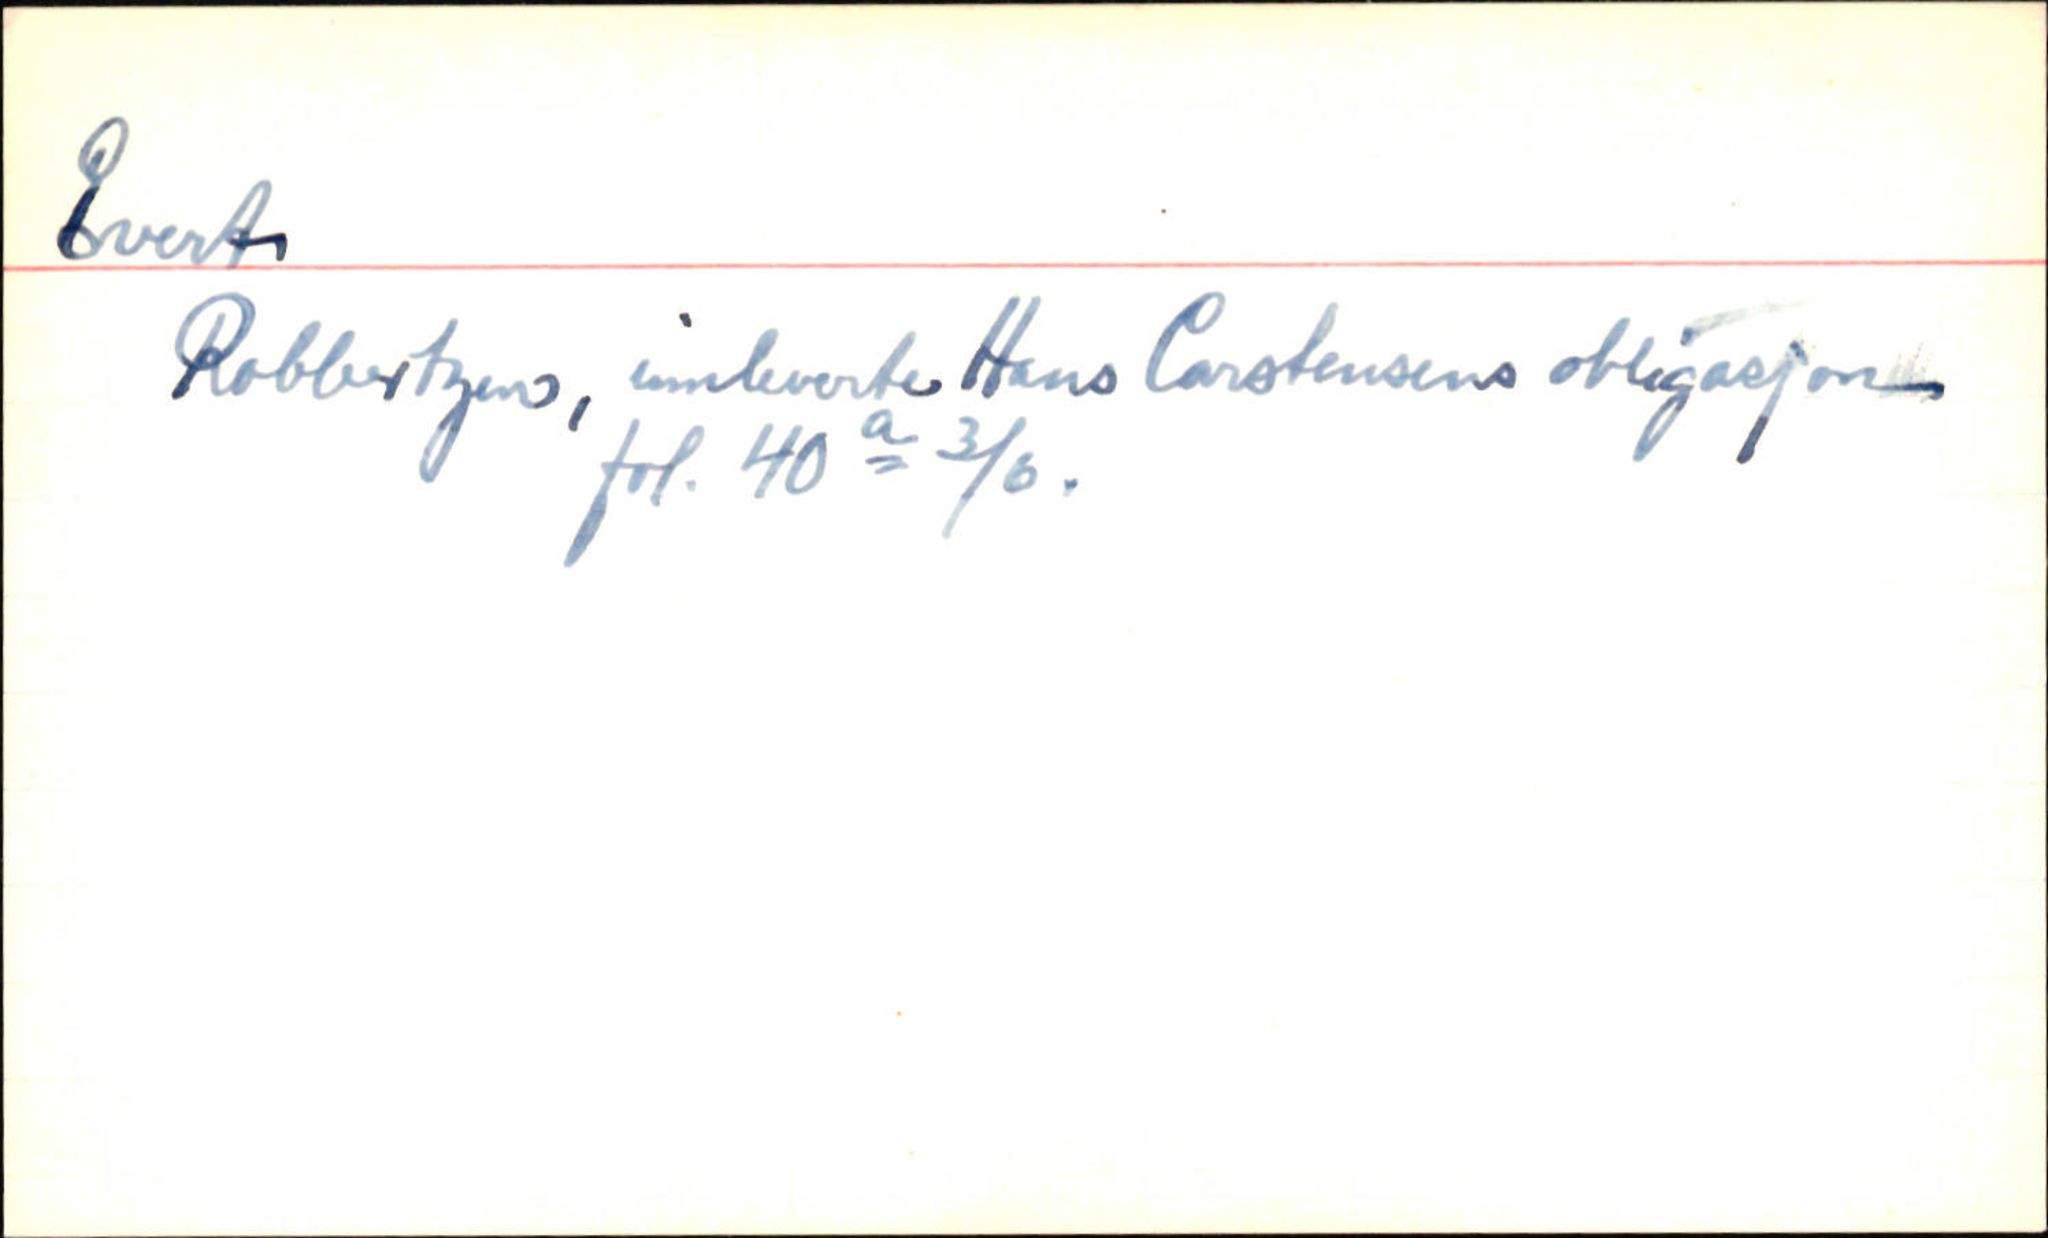 Evert
Robbertzen, innleverte Hans Carstensens obligasjon
fol. 40 a 3/6.